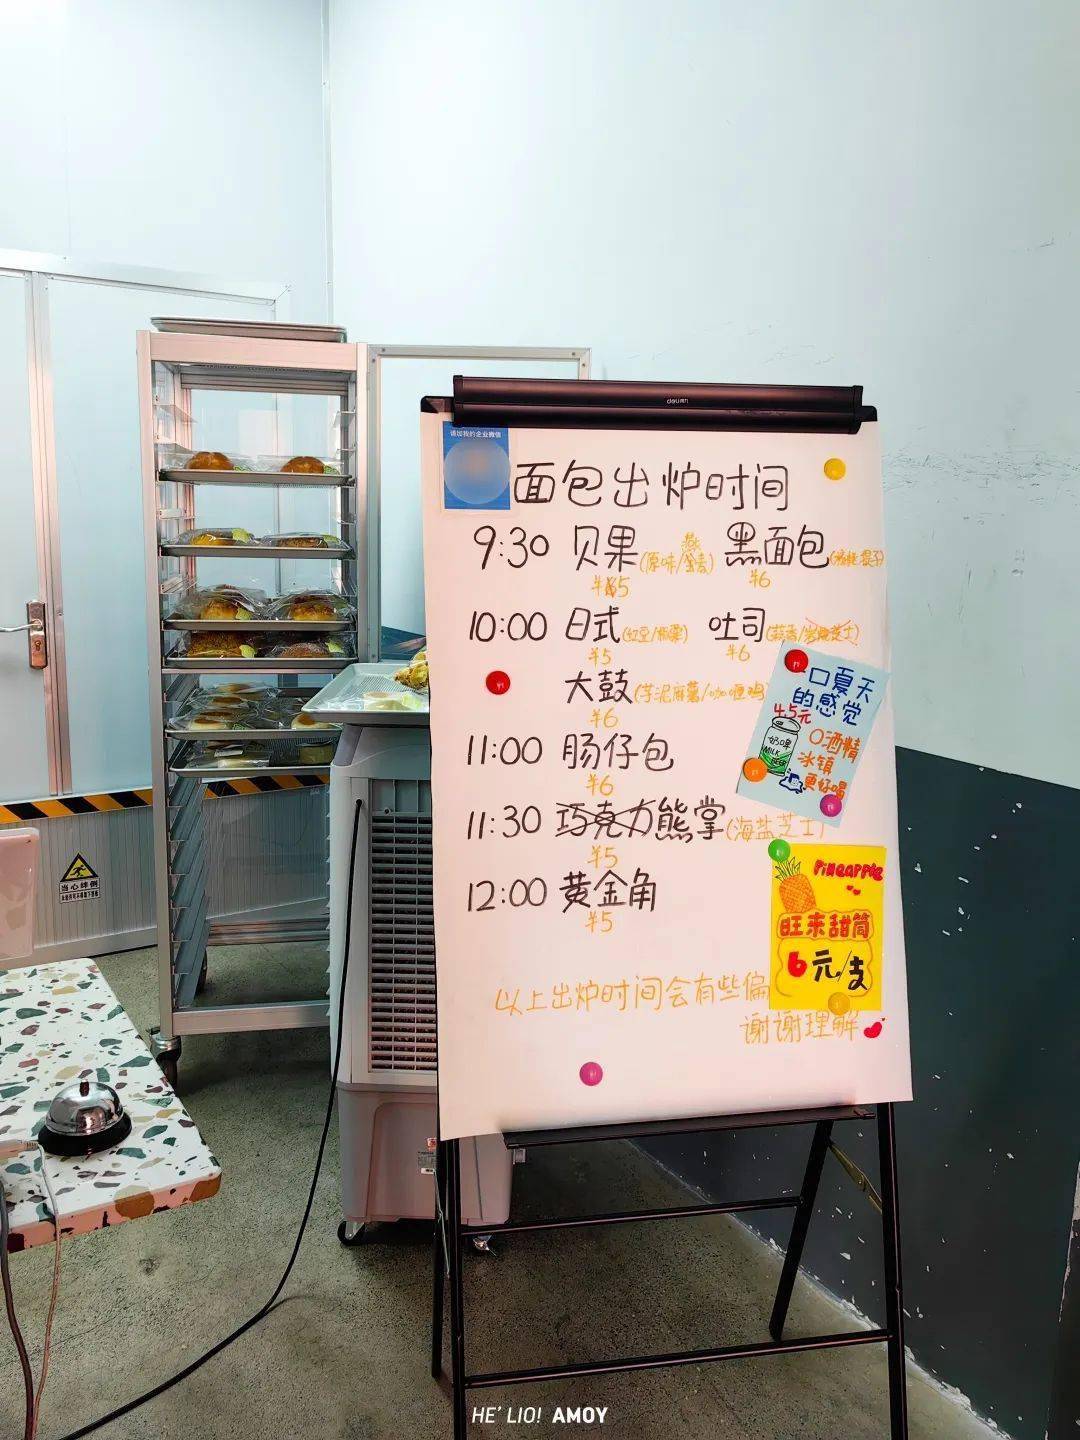 deli得力
请加我的企业微信
面包出炉时间
9:30 贝果(原味/燕麦) 黑面包
¥5 ¥6
10:00 日式 吐司(蒜香/岩烧芝士)
¥5 ¥6
大鼓(芋泥麻薯/咖喱鸡)
¥6
11:00 肠仔包
¥6
11:30 巧克力熊掌(海盐芝士)
¥5
12:00 黄金角
¥5
以上出炉时间会有些偏
谢谢理解
一口夏天
的感觉
4.5元
奶啤
MILK
BEER
0酒精
冰镇
更好喝
PiNEAPPLE
旺来甜筒
6元/支
当心绊倒
HE' LIO! AMOY